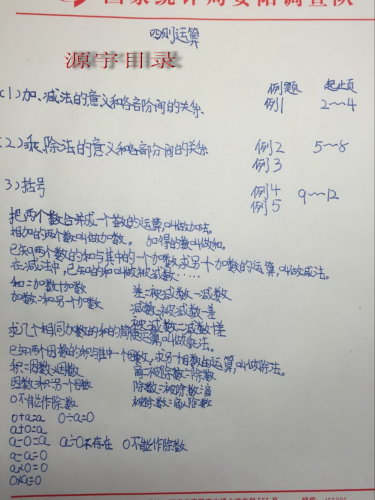 国家统计局安阳调查队
四则运算
源宇目录
例题 起止页
(1)加、减法的意义和各部分间的关系 例1 2~4
(2)乘、除法的意义和各部分间的关系 例2 5~8
例3
3)括号 例4 9~12
例5
把两个数合并成一个数的运算,叫做加法。
相加的两个数叫做加数。 加得的数叫做和。
已知两个数的和与其中的一个加数,求另个加数的运算,叫做减法。
在减法中,已知的和叫做被减数……
和=加数+加数 差=被减数-减数
加数=和-另个加数 减数=被减数-差
被减数=减数+差
求几个相同加数的和的简便运算,叫做乘法。
已知两个因数的积与其中一个因数,求另一个因数的运算,叫做除法。
积=因数×因数 商=被除数÷除数
因数=积÷另个因数 除数=被除数÷商
0不能作除数 被除数=商×除数
0+a=a 0÷a=0
a+0=a
a-0=a a÷0不存在 0不能作除数
a-a=0
a×0=0
0×a=0